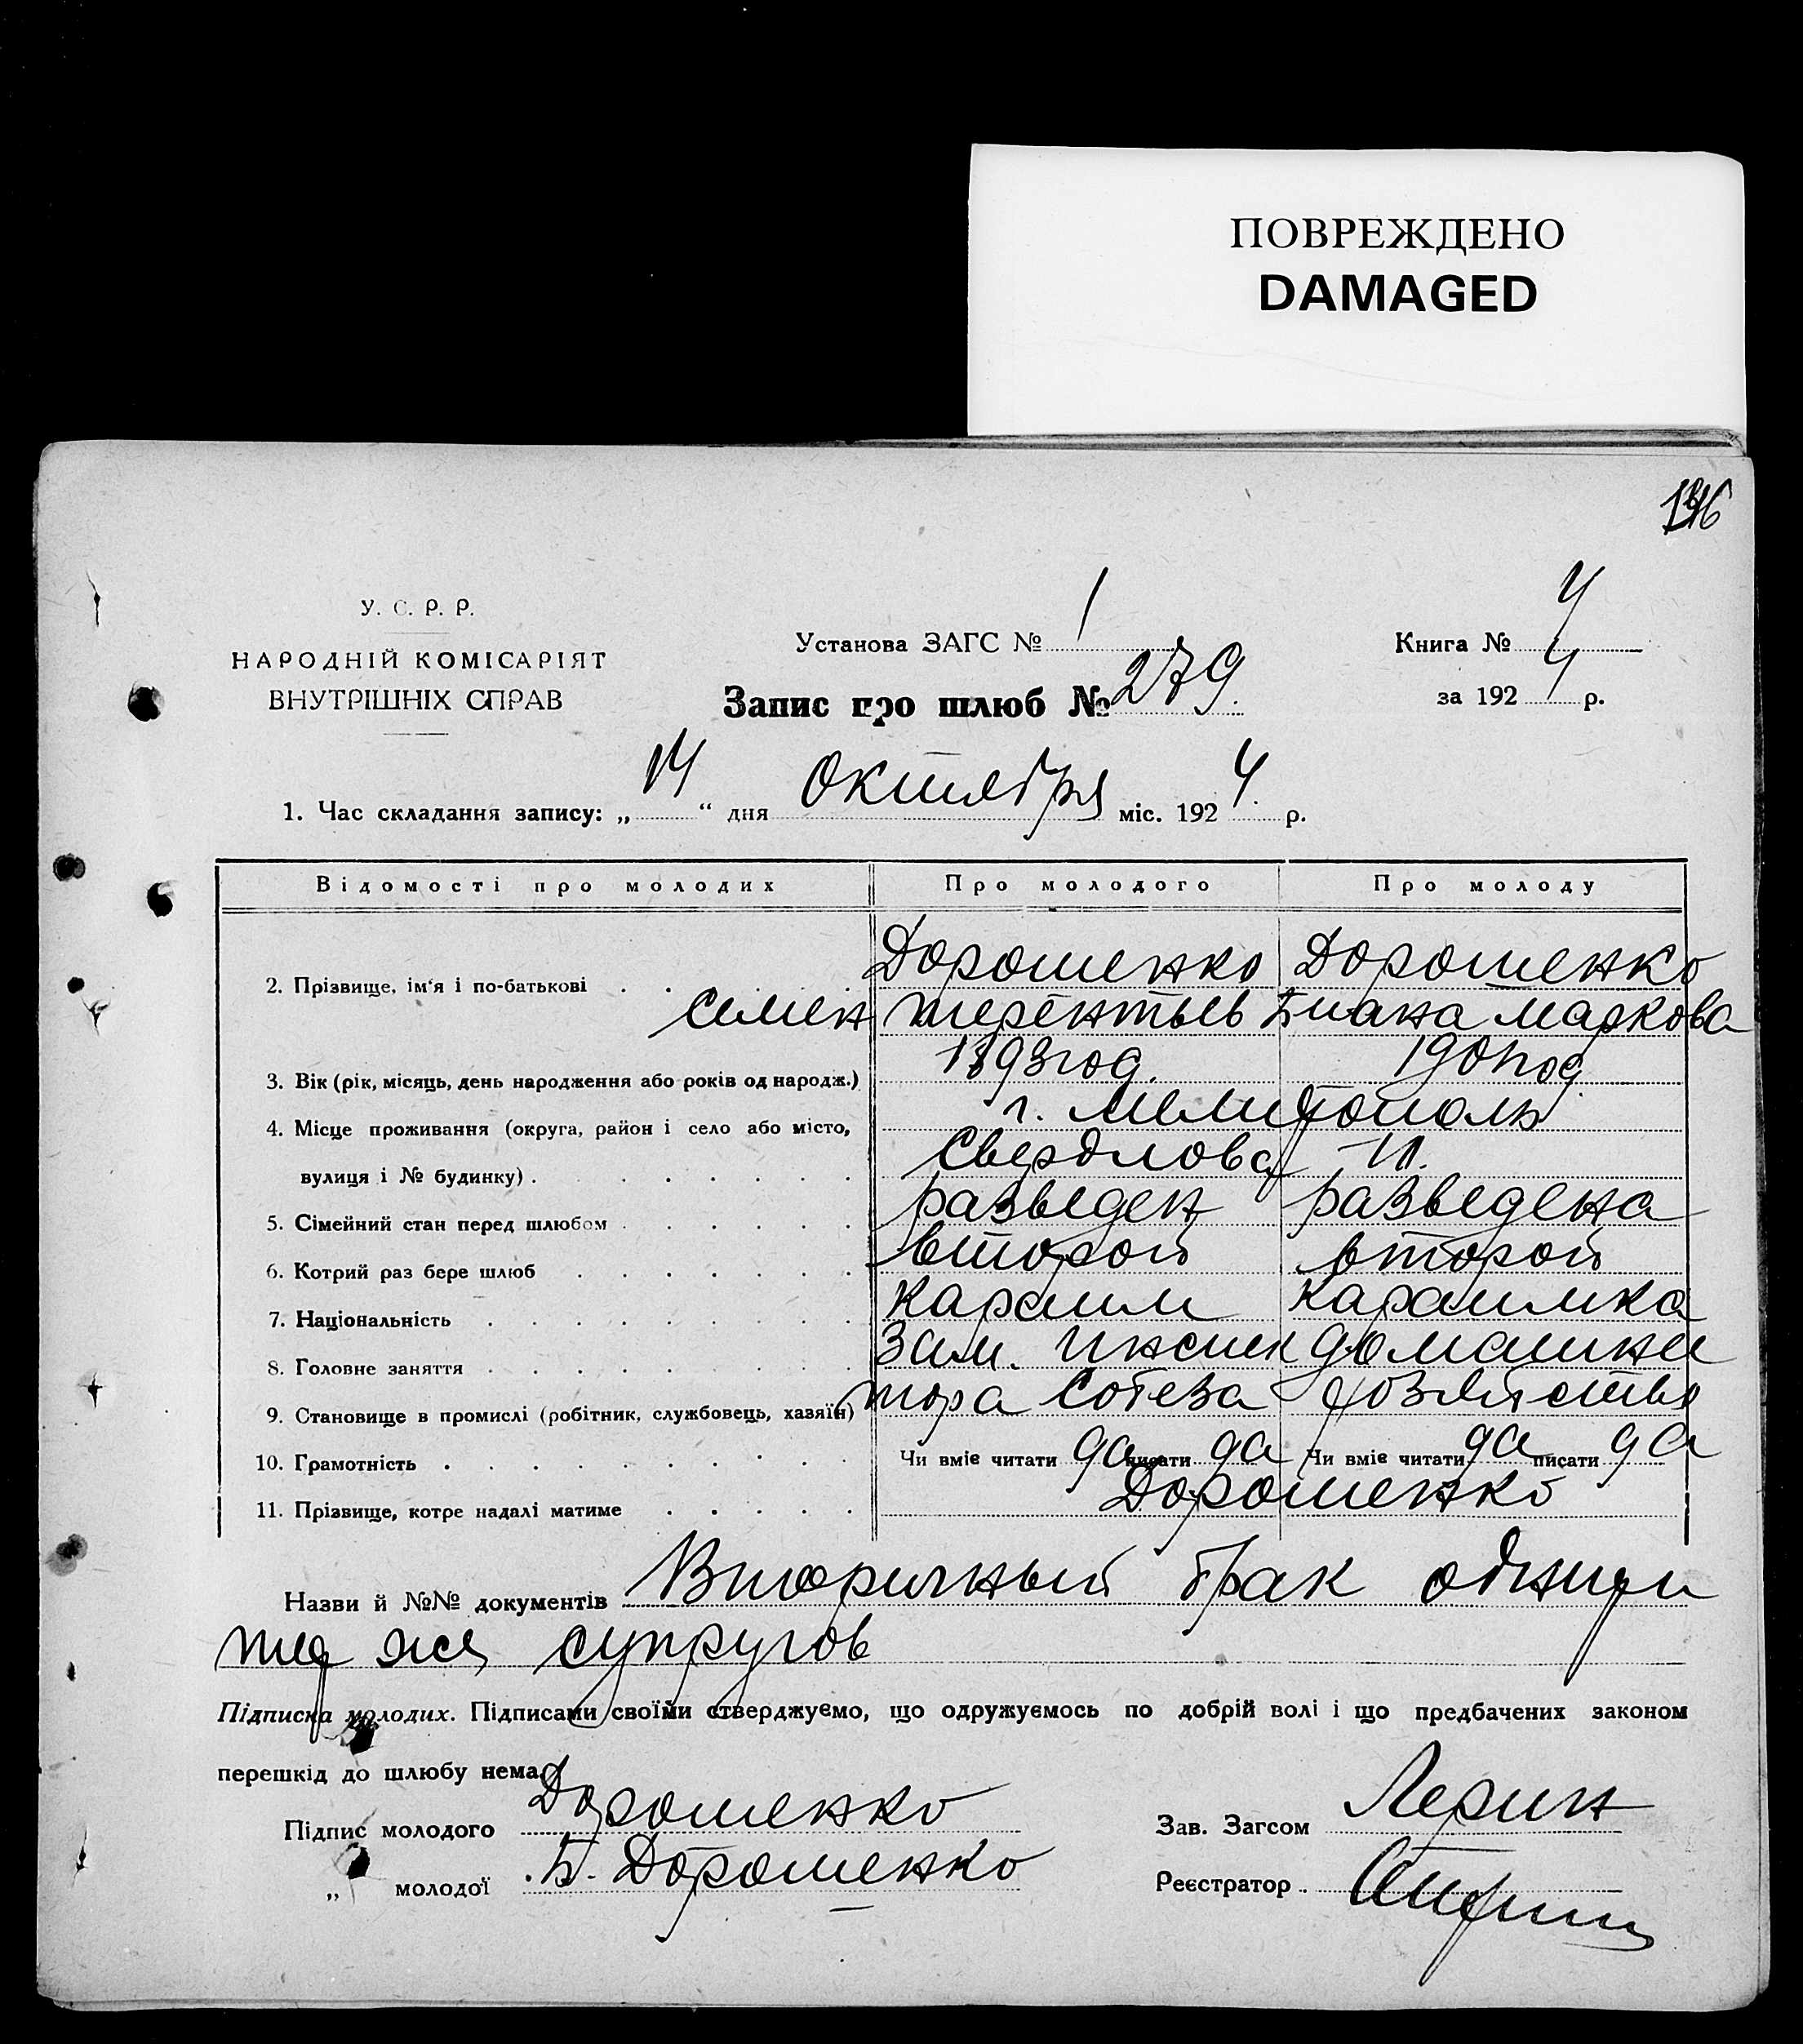 ПОВРЕЖДЕНО
DAMAGED
У. С. Р. Р.
НАРОДНІЙ КОМІСАРІЯТ
ВНУТРІШНІХ СПРАВ
Установа ЗАГС № 1
Книга № 4
Запис про шлюб № 279.
за 1924 р.
1. Час складання запису: „14“ дня Октября міс. 1924. р.
Відомості про молодих Про молодого Про молоду
2. Прізвище, ім'я і по-батькові Дорошенко Дорошенко
Семен Терентьев Биана Маркова
3. Вік (рік, місяць, день народження або років од народж.) 1893 год. 1901 год
4. Місце проживання (округа, район і село або місто, г. Мелитополь
вулиця і № будинку) Свердлова 11.
5. Сімейний стан перед шлюбом разведен разведена
6. Котрий раз бере шлюб второй второй
7. Національність Караим Караимка
8. Головне заняття Зам. Инспек домашнее
9. Становище в промислі (робітник, службовець, хазяїн) тора Собеза хозяйство
10. Грамотність Чи вміє читати да писати да Чи вміє читати да писати да
11. Прізвище, котре надалі матиме Дорошенко
Назви й №№ документів Вторичный брак одних и
тех же супругов
Підписка молодих. Підписами своїми стверджуємо, що одружуємось по добрій волі і що предбачених законом
перешкід до шлюбу нема.
Підпис молодого Дорошенко
Зав. Загсом
„ молодої Б. Дорошенко
Реєстратор